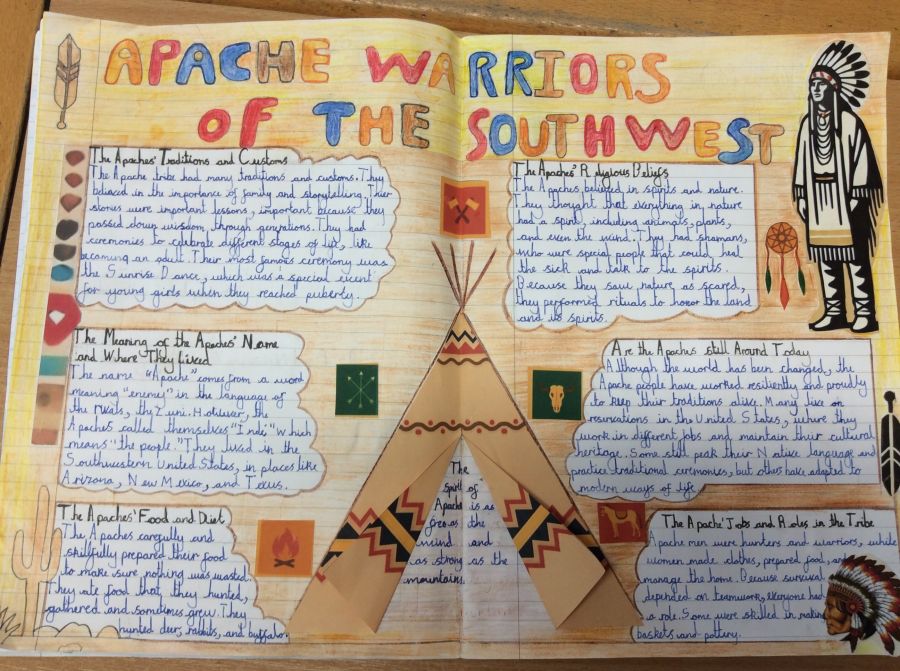 APACHE WARRIORS
OF THE SOUTHWEST
The Apaches' Traditions and Customs
The Apache tribe had many traditions and customs. They
believed in the importance of family and storytelling. Their
stories were important lessons, important because they
passed down wisdom through genyrations. They had
ceremonies to celebrate different stages of life, like
becoming an adult. Their most famous ceremony was
the Sunrise Dance, which was a special event
for young girls when they reached puberty.
The Meaning of the Apaches' Name
and Where They Lived
The name "Apache" comes from a word
meaning "enemy" in the language of
the rivals, the Zuni. However, the
Apaches called themselves "Indé" which
means "the people." They lived in the
Southwestern United States, in places like
Arizona, New Mexico, and Texas.
The Apaches' Food and Diet
The Apaches carefully and
skillfully prepared their food
to make sure nothing was wasted.
They ate food that they hunted,
gathered and sometimes grew. They
hunted deer, rabbits, and buffalo.
The
spirit of
Apache is as
free as the
wind and
as strong as the
mountains.
The Apaches' Religious Beliefs
The Apaches believed in spirits and nature.
They thought that everything in nature
had a spirit, including animals, plants,
and even the wind. They had shamans,
who were special people that could heal
the sick and talk to the spirits.
Because they saw nature as scared,
they performed rituals to honor the land
and its spirits.
Are the Apaches still Around Today
Although the world has been changed, the
Apache people have worked resiliently and proudly
to keep their traditions alive. Many live on
reservations in the United States, where they
work in different jobs and maintain their cultural
heritage. Some still peak their Native language and
practice traditional ceremonies, but others have adapted to
modern ways of life.
The Apache' Jobs and Roles in the Tribe
Apache men were hunters and warriors, while
women made clothes, prepared food, and
manage the home. Because survival
depended on teamwork, everyone had
a role. Some were skilled in making
baskets and pottery.